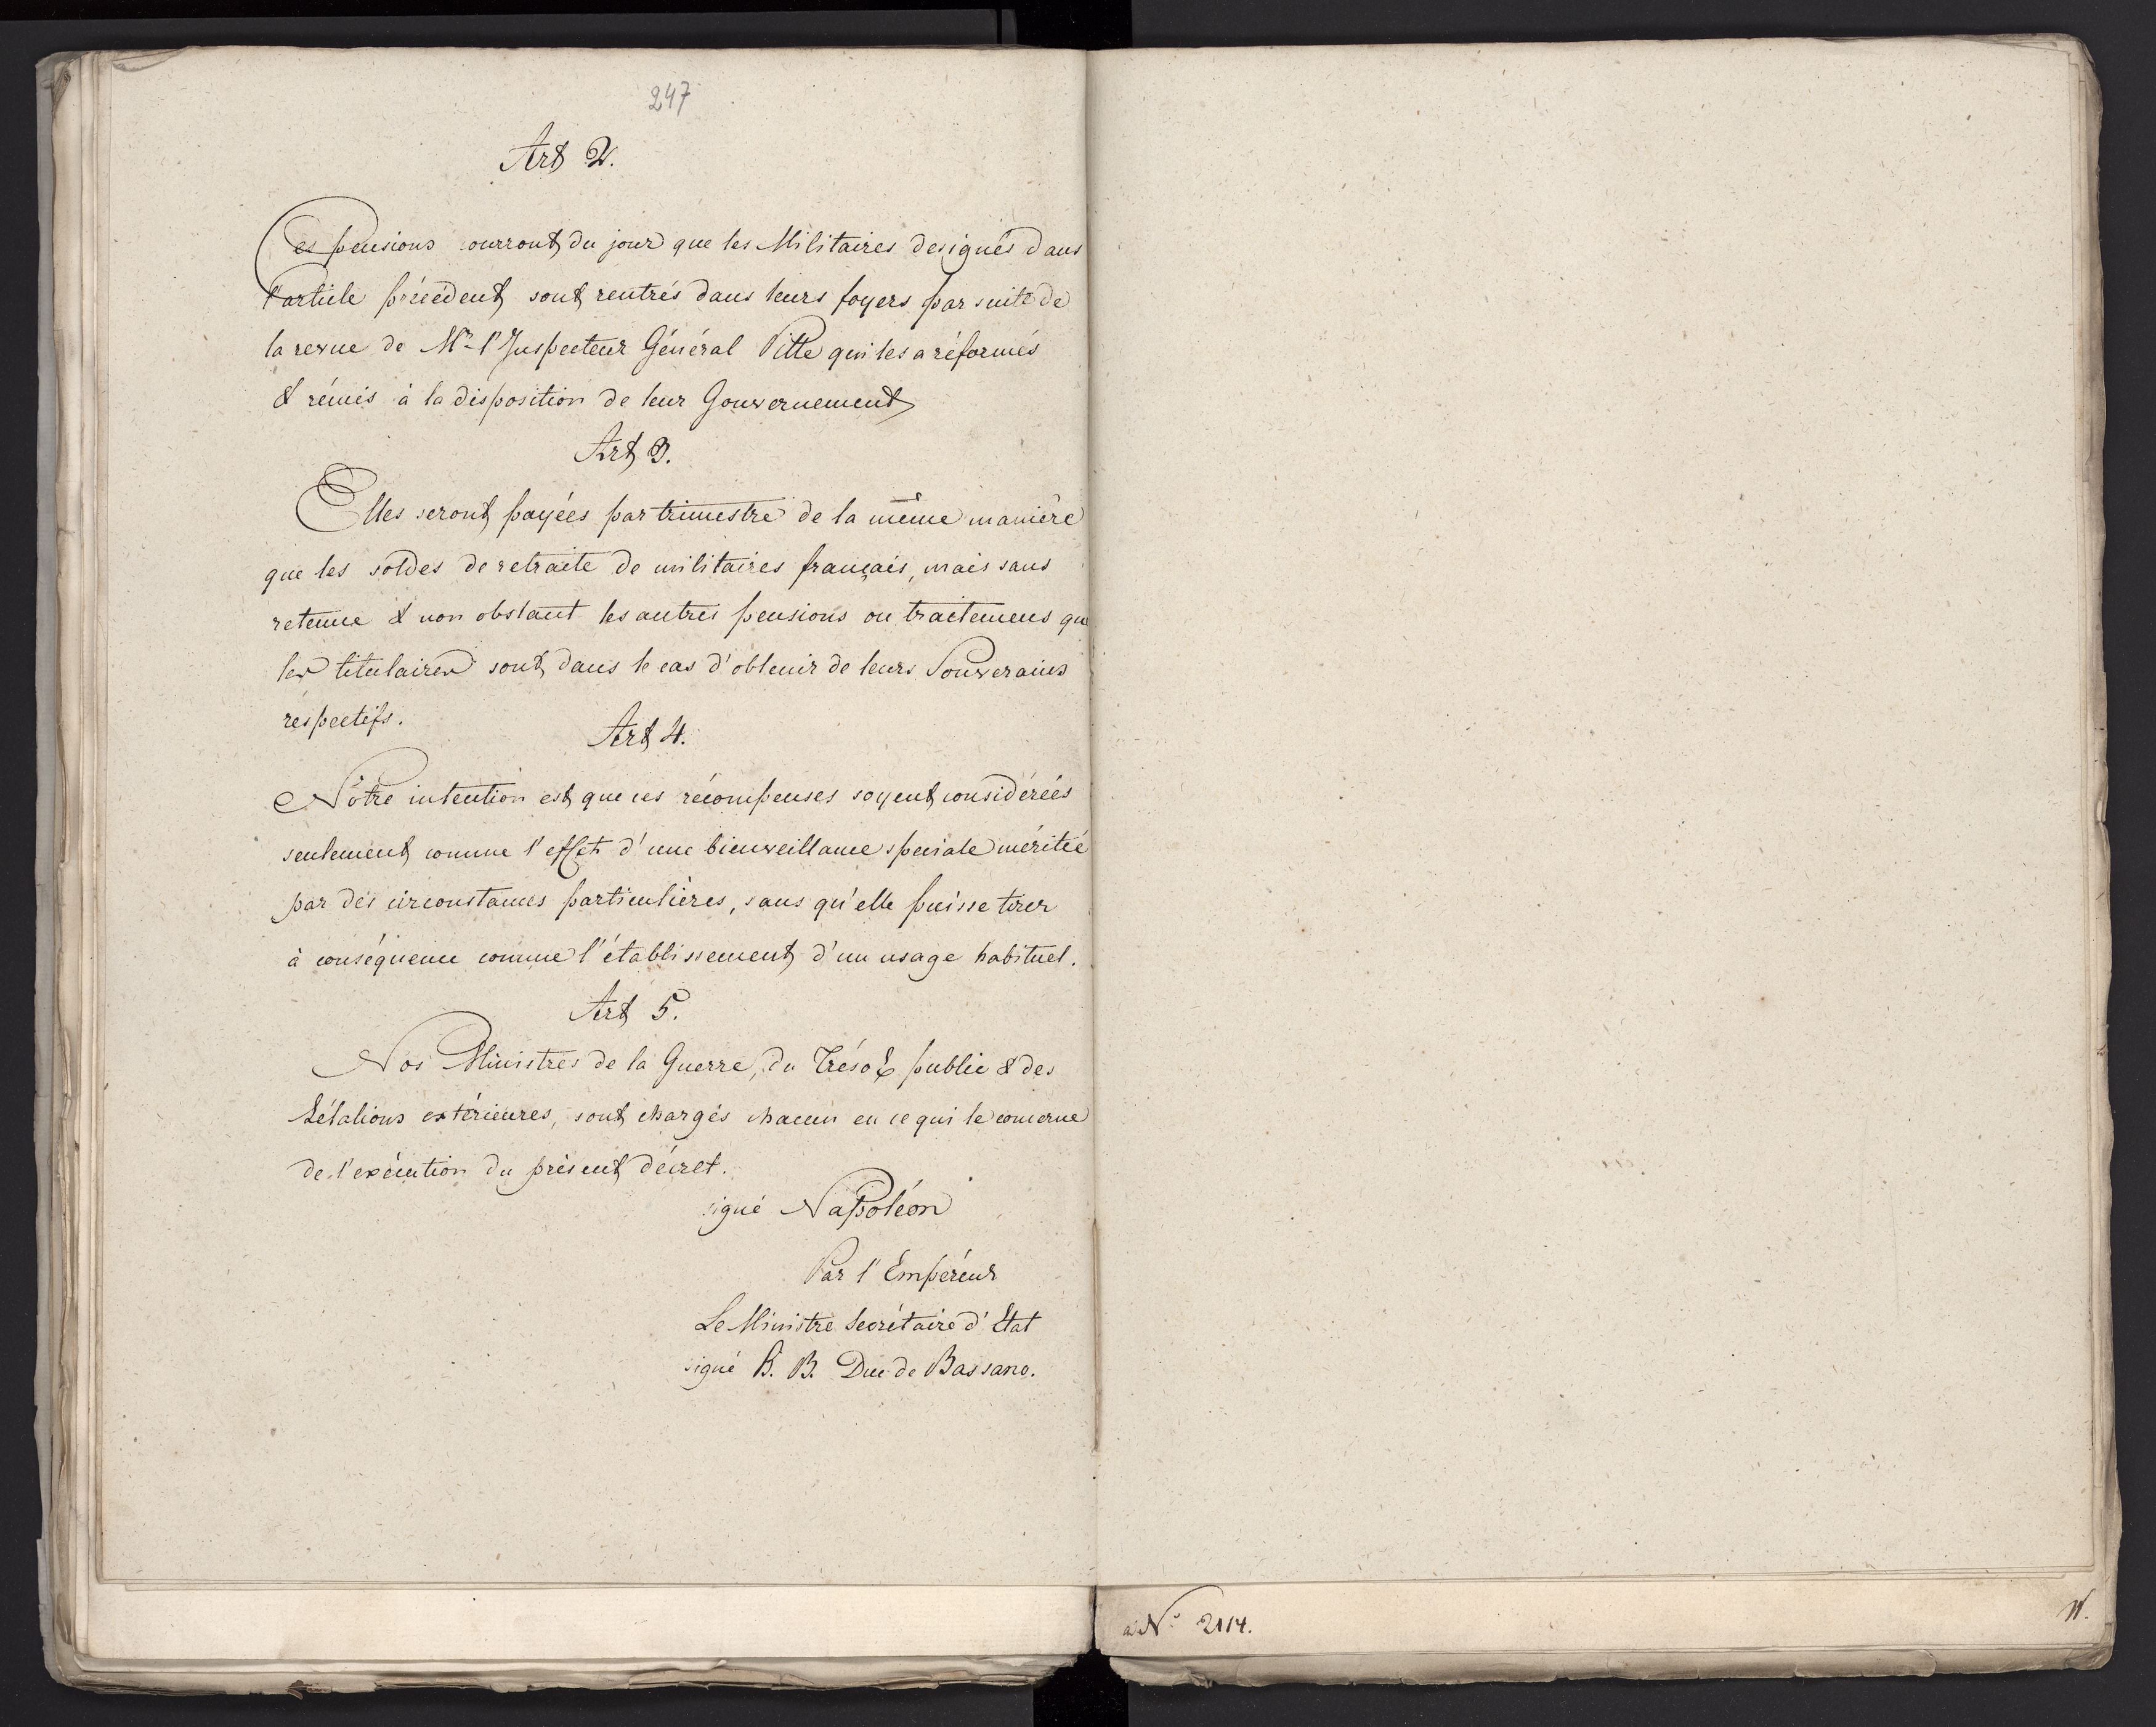 247
Art 2.
Ces pensions courront du jour que les Militaires designés dans
l'article précédent sont rentrés dans leurs foyers par suite de
la revue de Mr l'Inspecteur Général Pille qui les a réformés
& rémis à la disposition de leur Gouvernement
Art 3.
Elles seront payées par trimestre de la même manière
que les soldes de retraite de militaires français, mais sans
retenue & non obstant les autres pensions ou traitemens que
les titulaires sont dans le cas d'obtenir de leurs Souverains
respectifs.
Art 4.
Nôtre intention est que ces récompenses soyent considérées
seulement comme l'effet d'une bienveillance speciale méritée
par des circonstances particulières, sans qu'elle puisse tirer
à conséquence comme l'établissement d'un usage habituel.
Art 5.
Nos Ministres de la Guerre, du Trésor public & des
Rélations extérieures, sont chargés chacun en ce qui le concerne
de l'exécution du présent décret.
signé Napoléon
Par l'Empéreur
Le Ministre Secrétaire d'Etat
signé H. B. Duc de Bassano.
a No 2114.